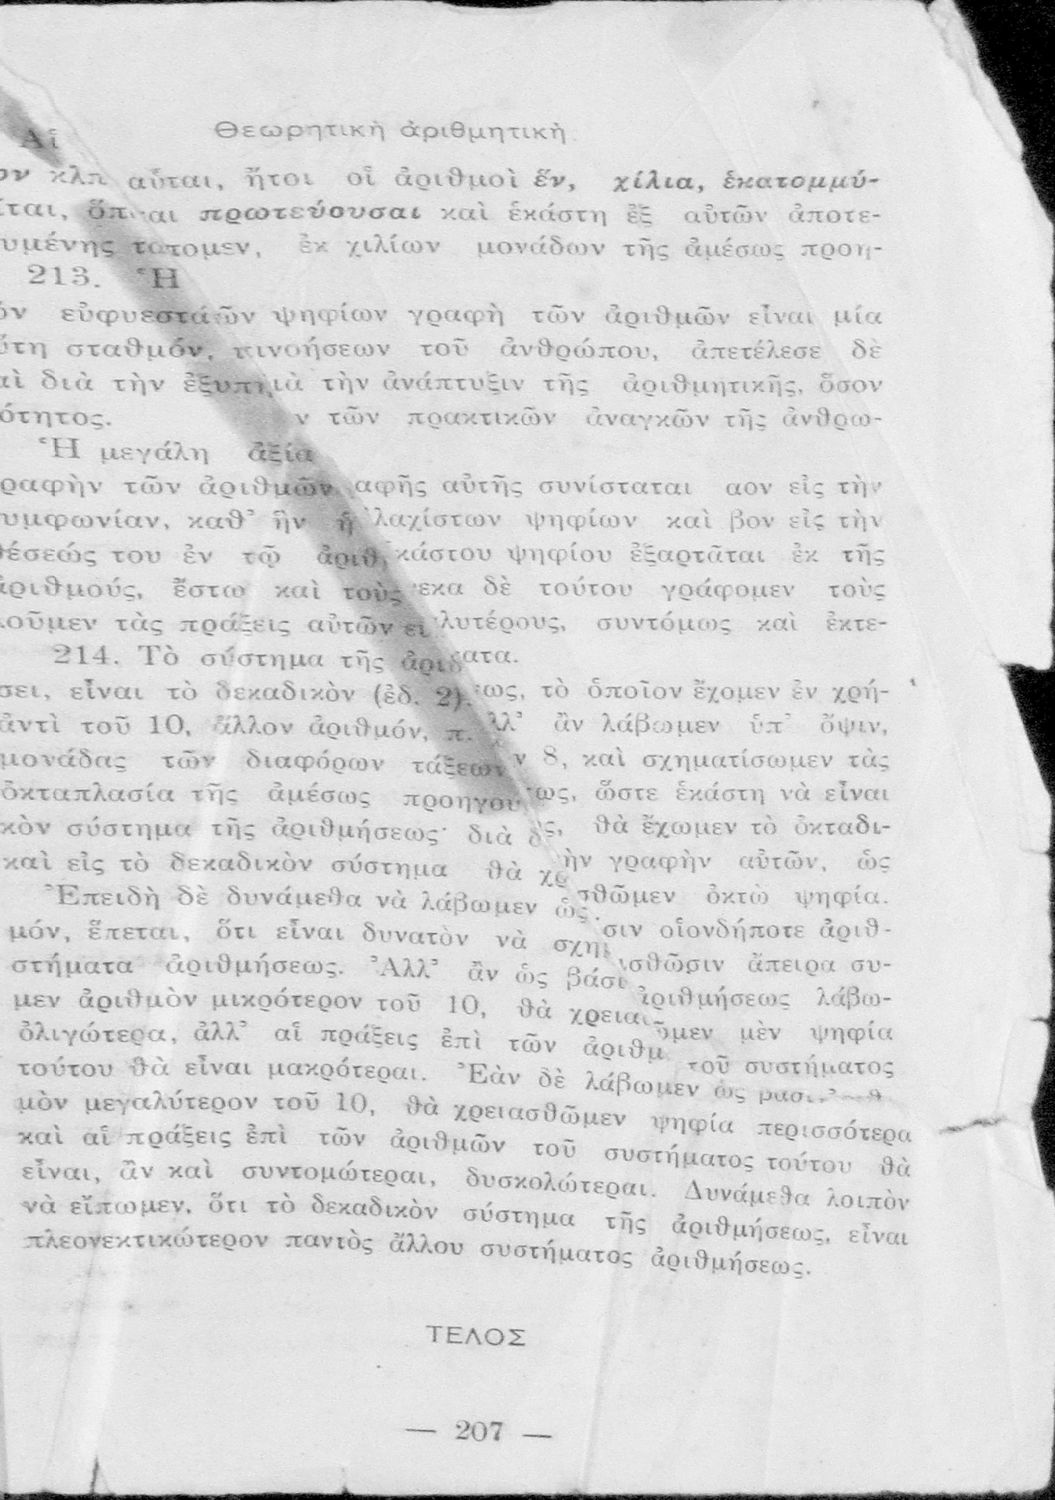 Θεωρητικὴ ἀριθμητικὴ
Αἱ
κλπ αὗται, ἤτοι οἱ ἀριθμοὶ ἕν, χίλια, ἑκατομμύ-
πρωτεύουσαι καὶ ἑκάστη ἐξ αὐτῶν ἀποτε-
ἐκ χιλίων μονάδων τῆς ἀμέσως προη-
213. Ἡ
ψηφίων γραφὴ τῶν ἀριθμῶν εἶναι μία
σταθμόν, τοῦ ἀνθρώπου, ἀπετέλεσε δὲ
διὰ τὴν τὴν ἀνάπτυξιν τῆς ἀριθμητικῆς, ὅσον
τῶν πρακτικῶν ἀναγκῶν τῆς ἀνθρω-
Ἡ μεγάλη ἀξία
τῶν ἀριθμῶν αὐτῆς συνίσταται αον εἰς τὴν
καθ’ ἣν ἡ ψηφίων καὶ βον εἰς τὴν
του ἐν τῷ ψηφίου ἐξαρτᾶται ἐκ τῆς
ἔστω καὶ τοὺς δὲ τούτου γράφομεν τοὺς
τὰς πράξεις αὐτῶν συντόμως καὶ ἐκτε-
214. Τὸ σύστημα τῆς
εἶναι τὸ δεκαδικὸν (ἐδ. 2). τὸ ὁποῖον ἔχομεν ἐν χρή-
ἀντὶ τοῦ 10, ἄλλον ἀριθμόν, π. ἂν λάβωμεν ὑπ’ ὄψιν,
μονάδας τῶν διαφόρων τάξεων 8, καὶ σχηματίσωμεν τὰς
ὀκταπλασία τῆς ἀμέσως ὥστε ἑκάστη νὰ εἶναι
κὸν σύστημα τῆς ἀριθμήσεως· διὰ θὰ ἔχωμεν τὸ ὀκταδι-
καὶ εἰς τὸ δεκαδικὸν σύστημα θὰ γραφὴν αὐτῶν, ὡς
Ἐπειδὴ δὲ δυνάμεθα νὰ λάβωμεν ὡς ὀκτὼ ψηφία.
μόν, ἕπεται, ὅτι εἶναι δυνατὸν νὰ οἱονδήποτε ἀριθ-
στήματα ἀριθμήσεως. Ἀλλ’ ἂν ὡς ἄπειρα συ-
μεν ἀριθμὸν μικρότερον τοῦ 10, θὰ ἀριθμήσεως λάβω-
ὀλιγώτερα, ἀλλ’ αἱ πράξεις ἐπὶ τῶν μὲν ψηφία
τούτου θὰ εἶναι μακρότεραι. Ἐὰν δὲ λάβωμεν ὡς τοῦ συστήματος
μὸν μεγαλύτερον τοῦ 10, θὰ χρειασθῶμεν ψηφία περισσότερα
καὶ αἱ πράξεις ἐπὶ τῶν ἀριθμῶν τοῦ συστήματος τούτου θὰ
εἶναι, ἂν καὶ συντομώτεραι, δυσκολώτεραι. Δυνάμεθα λοιπὸν
νὰ εἴπωμεν, ὅτι τὸ δεκαδικὸν σύστημα τῆς ἀριθμήσεως, εἶναι
πλεονεκτικώτερον παντὸς ἄλλου συστήματος ἀριθμήσεως.
ΤΕΛΟΣ
— 207 —